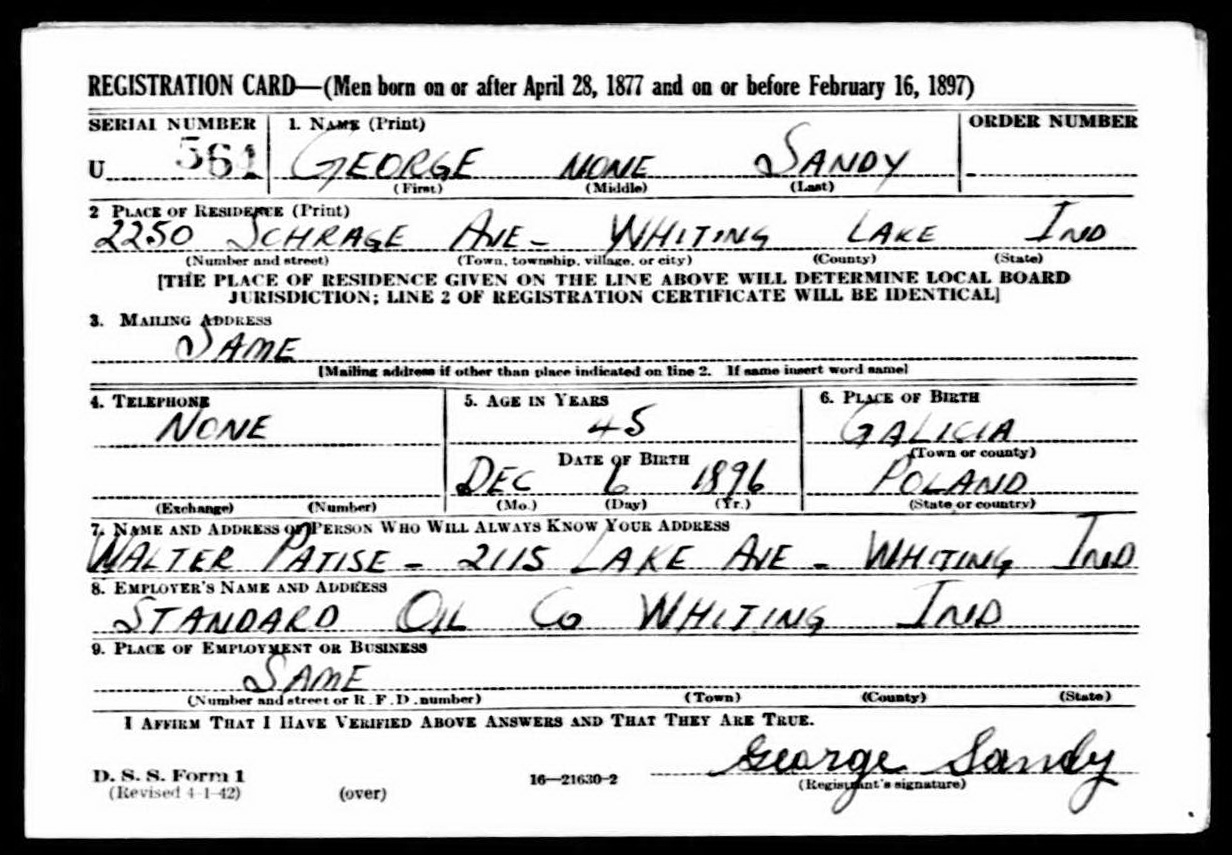 REGISTRATION CARD—(Men born on or after April 28, 1877 and on or before February 16, 1897)
SERIAL NUMBER 1. NAME (Print) ORDER NUMBER
U 561 GEORGE NONE SANDY
(First) (Middle) (Last)
2 PLACE OF RESIDENCE (Print)
2250 SCHRAGE AVE- WHITING LAKE IND
(Number and street) (Town, township, village, or city) (County) (State)
[THE PLACE OF RESIDENCE GIVEN ON THE LINE ABOVE WILL DETERMINE LOCAL BOARD
JURISDICTION; LINE 2 OF REGISTRATION CERTIFICATE WILL BE IDENTICAL]
3. MAILING ADDRESS
SAME
[Mailing address if other than place indicated on line 2. If same insert word same]
4. TELEPHONE 5. AGE IN YEARS 6. PLACE OF BIRTH
NONE 45 GALICIA
(Town or county)
DATE OF BIRTH
DEC 6 1896 POLAND
(Exchange) (Number) (Mo.) (Day) (Yr.) (State or country)
7. NAME AND ADDRESS OF PERSON WHO WILL ALWAYS KNOW YOUR ADDRESS
WALTER PATISE - 2115 LAKE AVE - WHITING IND
8. EMPLOYER'S NAME AND ADDRESS
STANDARD OIL CO WHITING IND
9. PLACE OF EMPLOYMENT OR BUSINESS
SAME
(Number and street or R. F. D. number) (Town) (County) (State)
I AFFIRM THAT I HAVE VERIFIED ABOVE ANSWERS AND THAT THEY ARE TRUE.
George Sandy
D. S. S. Form 1 16—21630-2 (Registrant's signature)
(Revised 4-1-42) (over)